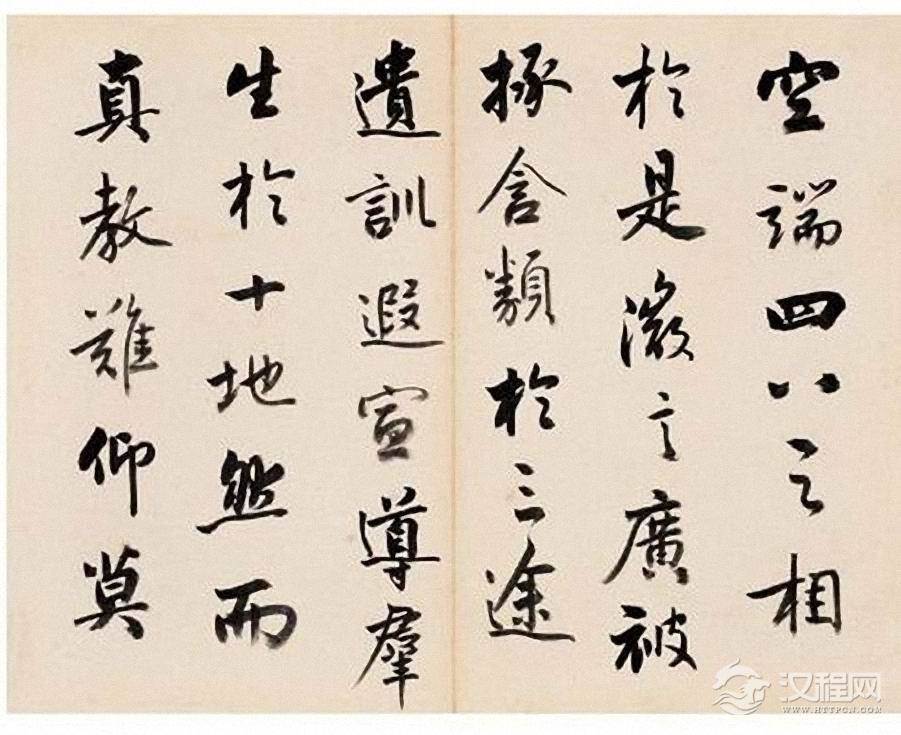 空端四八之相
於是微言廣被
拯含類於三途
遺訓遐宣導羣
生於十地然而
真教難仰莫
汉程网
WWW.HTTPCN.COM